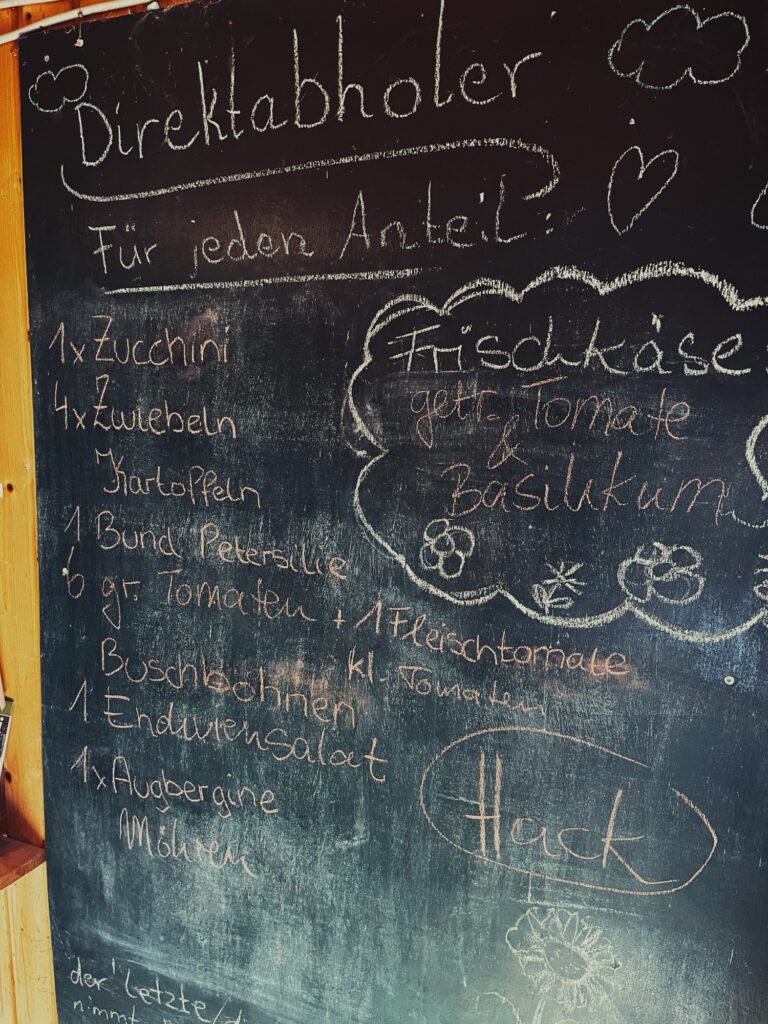 Direktabholer
Für jeden Anteil:
1x Zucchini
4x Zwiebeln
Kartoffeln
1 Bund Petersilie
6 gr. Tomaten + 1 Fleischtomate
kl. Tomaten
Buschbohnen
1 Endiviensalat
1x Augbergine
Möhren
Frischkäse:
getr. Tomate
&
Basilikum
Hack
der letzte/di
nimmt